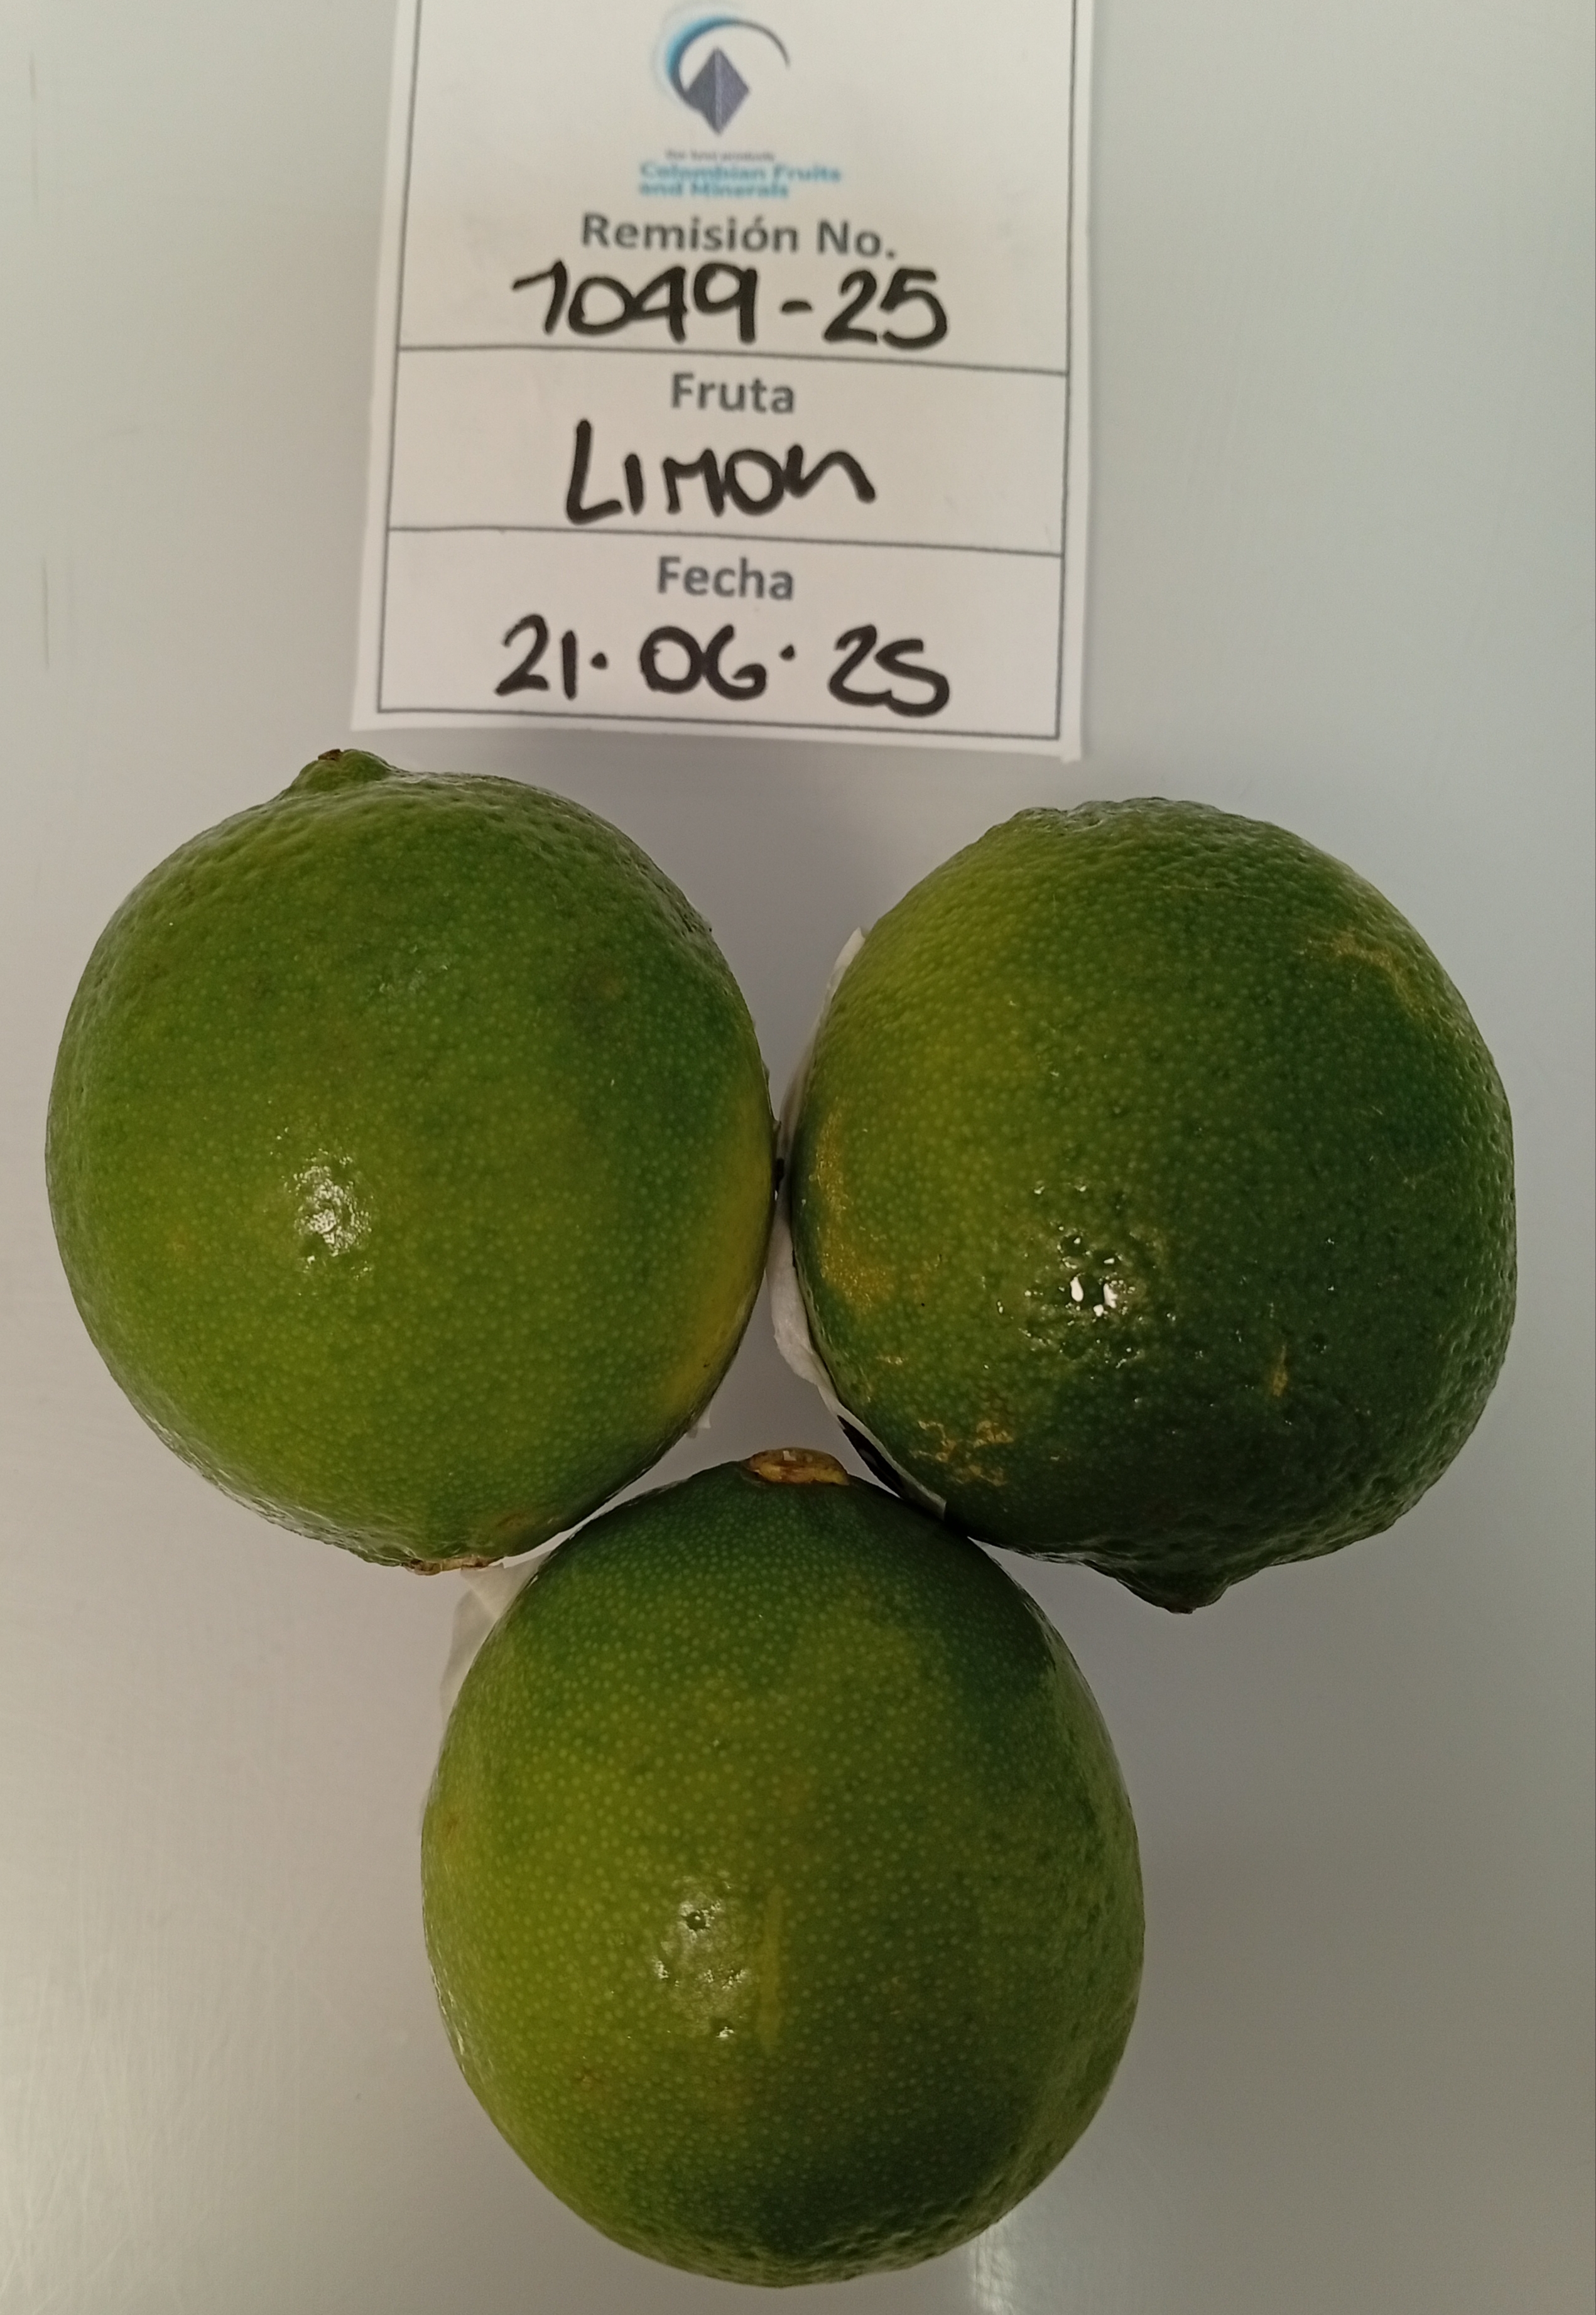 Colombian Fruits
and Minerals
Remisión No.
1049-25
Fruta
LIMON
Fecha
21·06·25